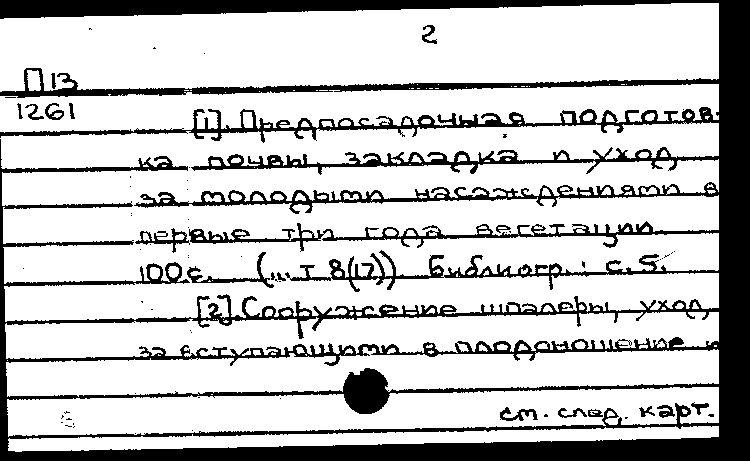 2
П 13
1261
[1]. Предпосадочная подготов-
ка почвы, закладка и уход
за молодыми насаждениями в
первые три года вегетации.
100 с. (... Т 8(17)) Библиогр.: с. 5.
[2]. Сооружение шпалеры, уход
за вступающими в плодоношение и
см. след. карт.